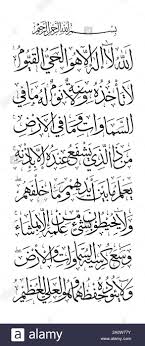 بسم الله الرحمن الرحيم
الله لا إله إلا هو الحي القيوم
لا تأخذه سنة ولا نوم له ما في
السماوات وما في الأرض
من ذا الذي يشفع عنده إلا بإذنه
يعلم ما بين أيديهم وما خلفهم
ولا يحيطون بشيء من علمه إلا بما شاء
وسع كرسيه السماوات والأرض
ولا يؤده حفظهما وهو العلي العظيم
alamy